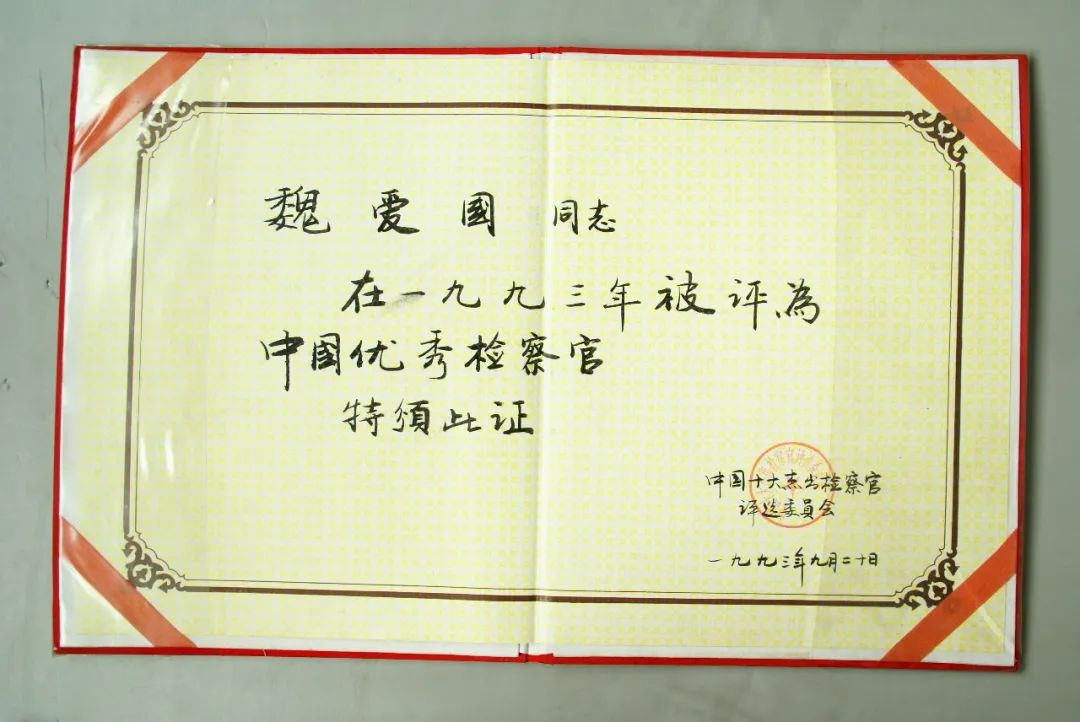 魏爱國 同志
在一九九三年被评為
中國优秀检察官
特颁此证
中国十大杰出检察官
评选委員会
一九九三年九月二十日